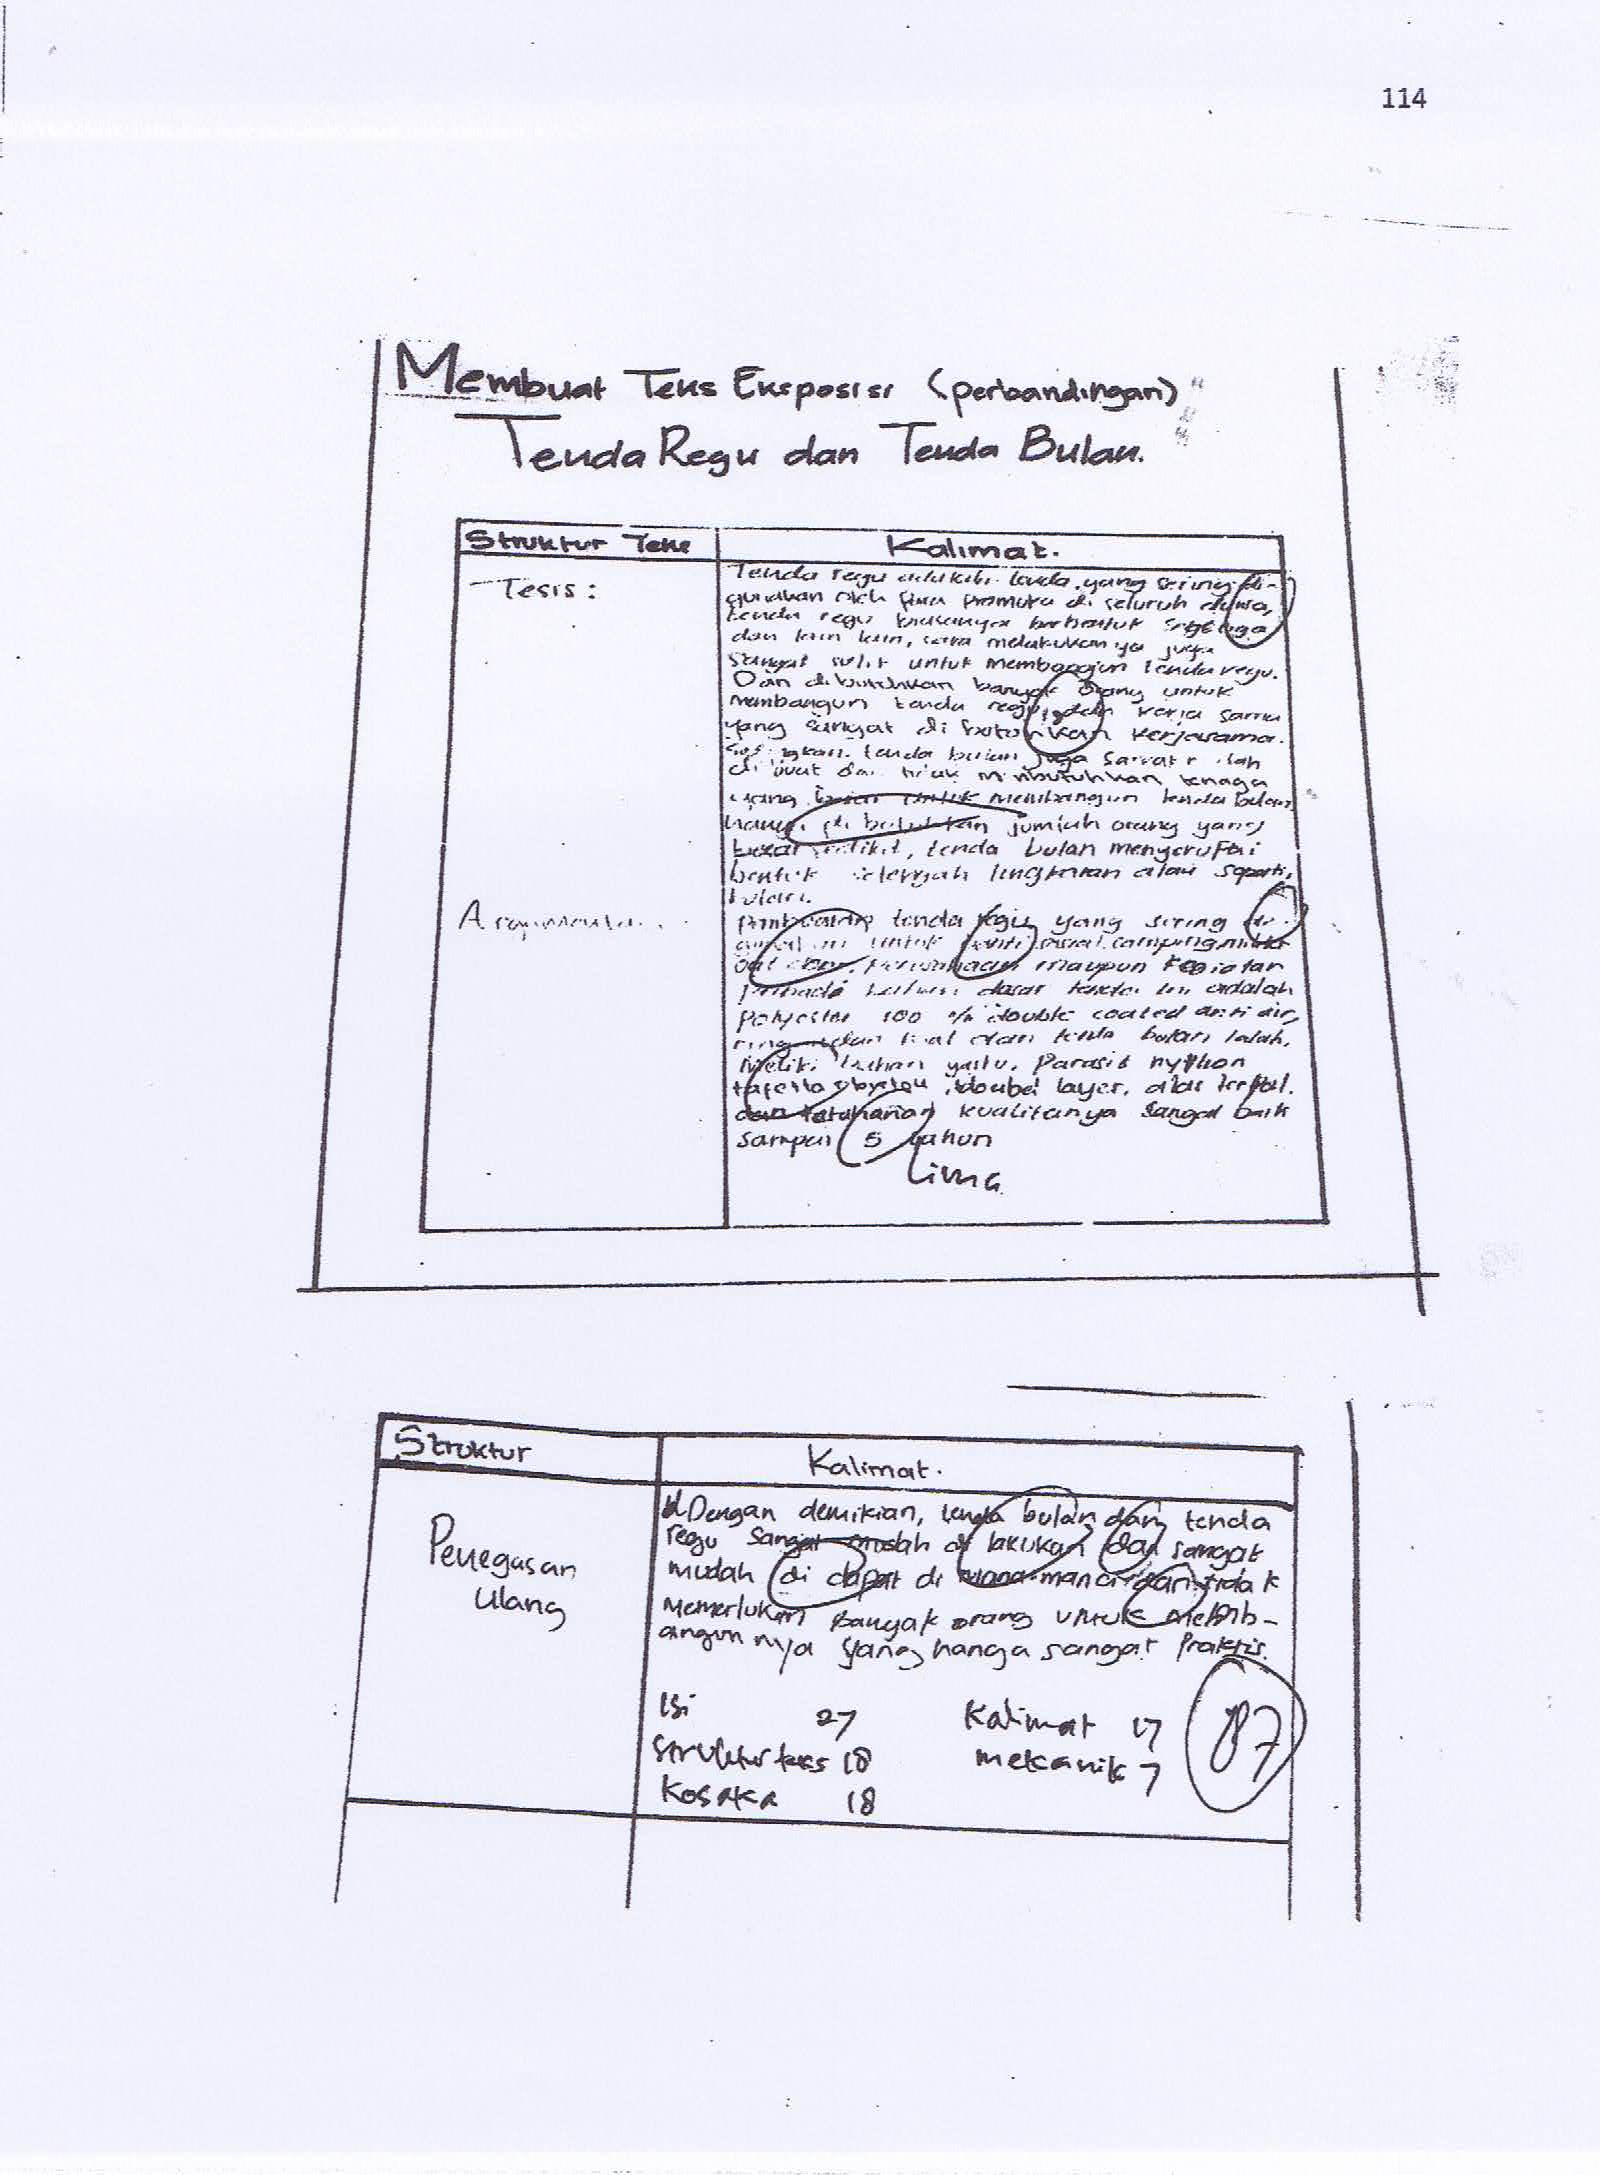 114
Membuat Teks Eksposisi (perbandingan)
"Tenda Regu dan Tenda Bulan."
Struktur Teks
Kalimat.
Tesis :
Tenda regu adalah tenda yang sering di-
gunakan oleh para pramuka di seluruh dunia,
tenda regu biasanya berbentuk segitiga
dan lain lain, cara melakukannya juga
sangat sulit untuk membangun tenda regu.
Dan dibutuhkan banyak orang untuk
membangun tenda regu, dan kerja sama
yang sangat di butuhkan kerjasama.
tenda bulan juga
di buat dan tidak membutuhkan tenaga
yang besar untuk membangun tenda bulan,
hanya di butuhkan jumlah orang yang
sedikit, tenda bulan menyerupai
bentuk setengah lingkaran atau seperti
bulan.
tenda regu yang sering di
gunakan untuk sosial, camping,
maupun kegiatan
bahan dasar tenda ini adalah
Polyester 100 % double coated anti air,
dan tenda bulan ialah,
bahan yaitu. Parasit
layer, alas terpal.
dan ketahanan kualitanya sangat baik
sampai 5 tahun
Lima
Struktur
Kalimat.
Penegasan
Ulang
Dengan demikian, tenda bulan dan tenda
regu sangat mudah di lakukan dan sangat
mudah di dapat di mana-mana dan tidak
memerlukan banyak orang untuk memb-
angunnya yang hanga sangat Praktis.
Isi 27 Kalimat 17
Struktur teks 18 mekanik 7
Kosaka 18
87